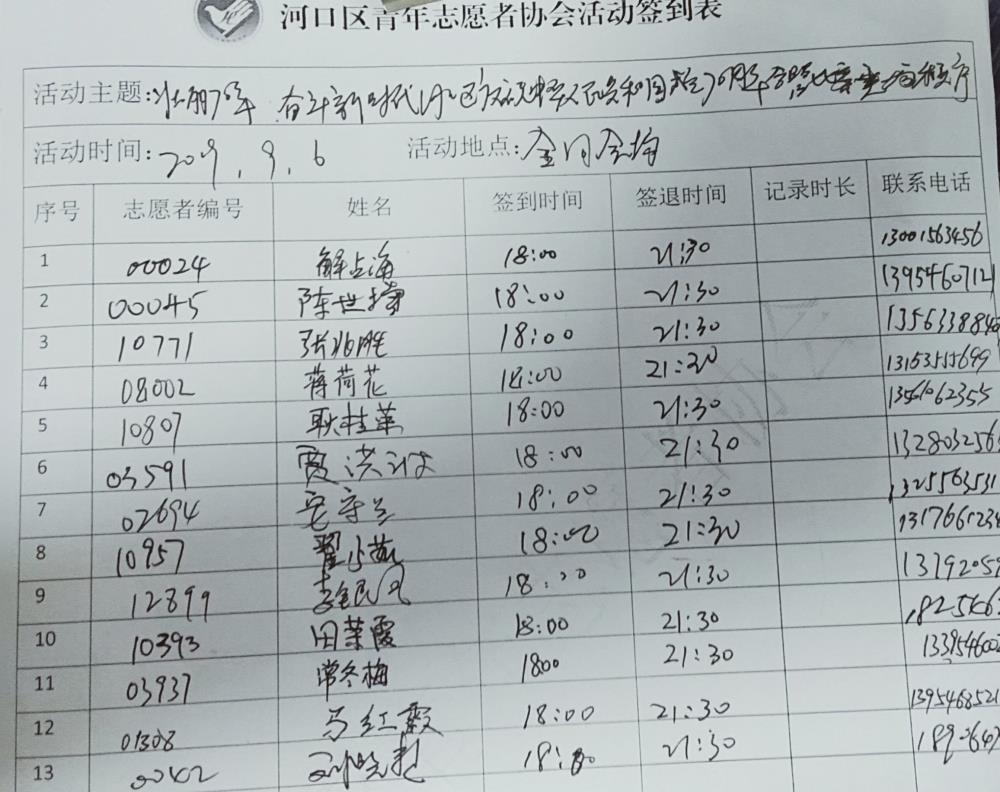 河口区青年志愿者协会活动签到表
活动主题:壮丽70年 奋斗新时代河口区庆祝中华人民共和国成立70周年
活动时间:2019.9.6 活动地点:
序号 志愿者编号 姓名 签到时间 签退时间 记录时长 联系电话
1 00024 解上海 18:00 21:30 13001563456
2 00045 陈世 18:00 21:30 13954607121
3 10771 张兆胜 18:00 21:30 135633884
4 08002 蒋荷花 18:00 21:30 13153555699
5 10807 耿桂华 18:00 21:30
6 03591 贾洪 18:00 21:30 132803256
7 02694 18:00 21:30 1325563531
8 10957 翟小燕 18:00 21:30 131766123
9 12899 18:00 21:30 1379205
10 10393 田荣霞 18:00 21:30
11 03937 常冬梅 18:00 21:30 133954600
12 01308 马红霞 18:00 21:30 1395468521
13 0042 18:00 21:30